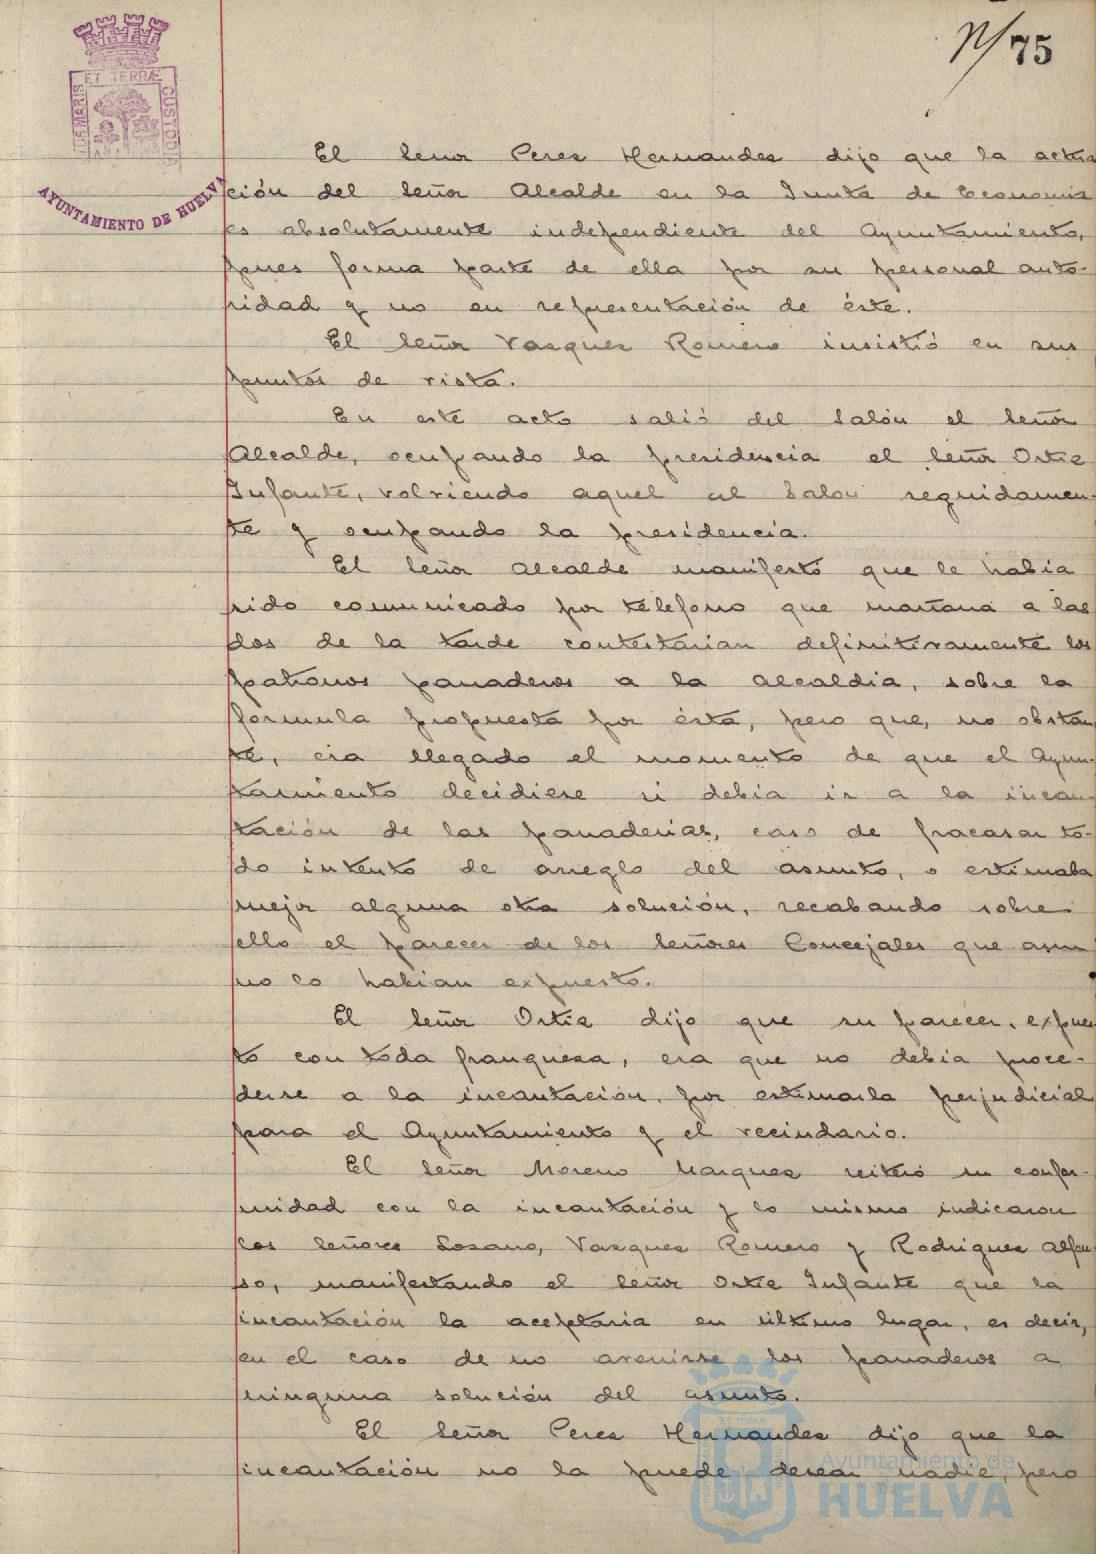 N/75
ET TERRÆ
CUSTODIA
AYUNTAMIENTO DE HUELVA
El Señor Peres Hernandes dijo que la actua
ción del Señor Alcalde en la Junta de Economia
es absolutamente independiente del Ayuntamiento,
pues forma parte de ella por su personal auto-
ridad y no en representación de éste.
El Señor Vasques Romero insistió en sus
puntos de vista.
En este acto salió del Salón el Señor
Alcalde, ocupando la presidencia el Señor Ortiz
Infante, volviendo aquel al Salon seguidamen-
te y ocupando la presidencia.
El Señor Alcalde manifestó que le habia
sido comunicado por telefono que mañana a las
dos de la tarde contestarian definitivamente los
patronos panaderos a la alcaldia, sobre la
formula propuesta por ésta, pero que, no obstan
te, era llegado el momento de que el Ayun-
tamiento decidiese si debia ir a la incau-
tación de las panaderias, caso de fracasar to-
do intento de arreglo del asunto, o estimaba
mejor alguna otra solución, recabando sobre
ello el parecer de los Señores Concejales que aun
no lo habian expuesto.
El Señor Ortiz dijo que su parecer, expues
to con toda franquesa, era que no debia proce-
derse a la incautación, por estimarla perjudicial
para el Ayuntamiento y el vecindario.
El Señor Moreno Marques reiteró su confor-
midad con la incautación y lo mismo indicaron
los Señores Losano, Vasques Romero y Rodrigues Alfon
so, manifestando el Señor Ortiz Infante que la
incautación la aceptaria en último lugar, es decir,
en el caso de no avenirse los panaderos a
ninguna solución del asunto.
El Señor Peres Hernandes dijo que la
incautación no la puede desear nadie, pero
Ayuntamiento de
HUELVA